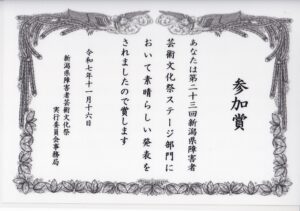 参加賞
あなたは第二十三回新潟県障害者
芸術文化祭ステージ部門に
おいて素晴らしい発表を
されましたので賞します
令和七年十一月十六日
新潟県障害者芸術文化祭
実行委員会事務局